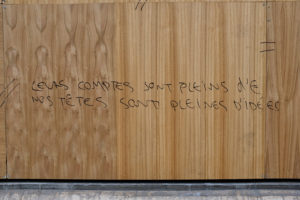 LEURS COMPTES SONT PLEINS D'E
NOS TÊTES SONT PLEINES D'IDÉES